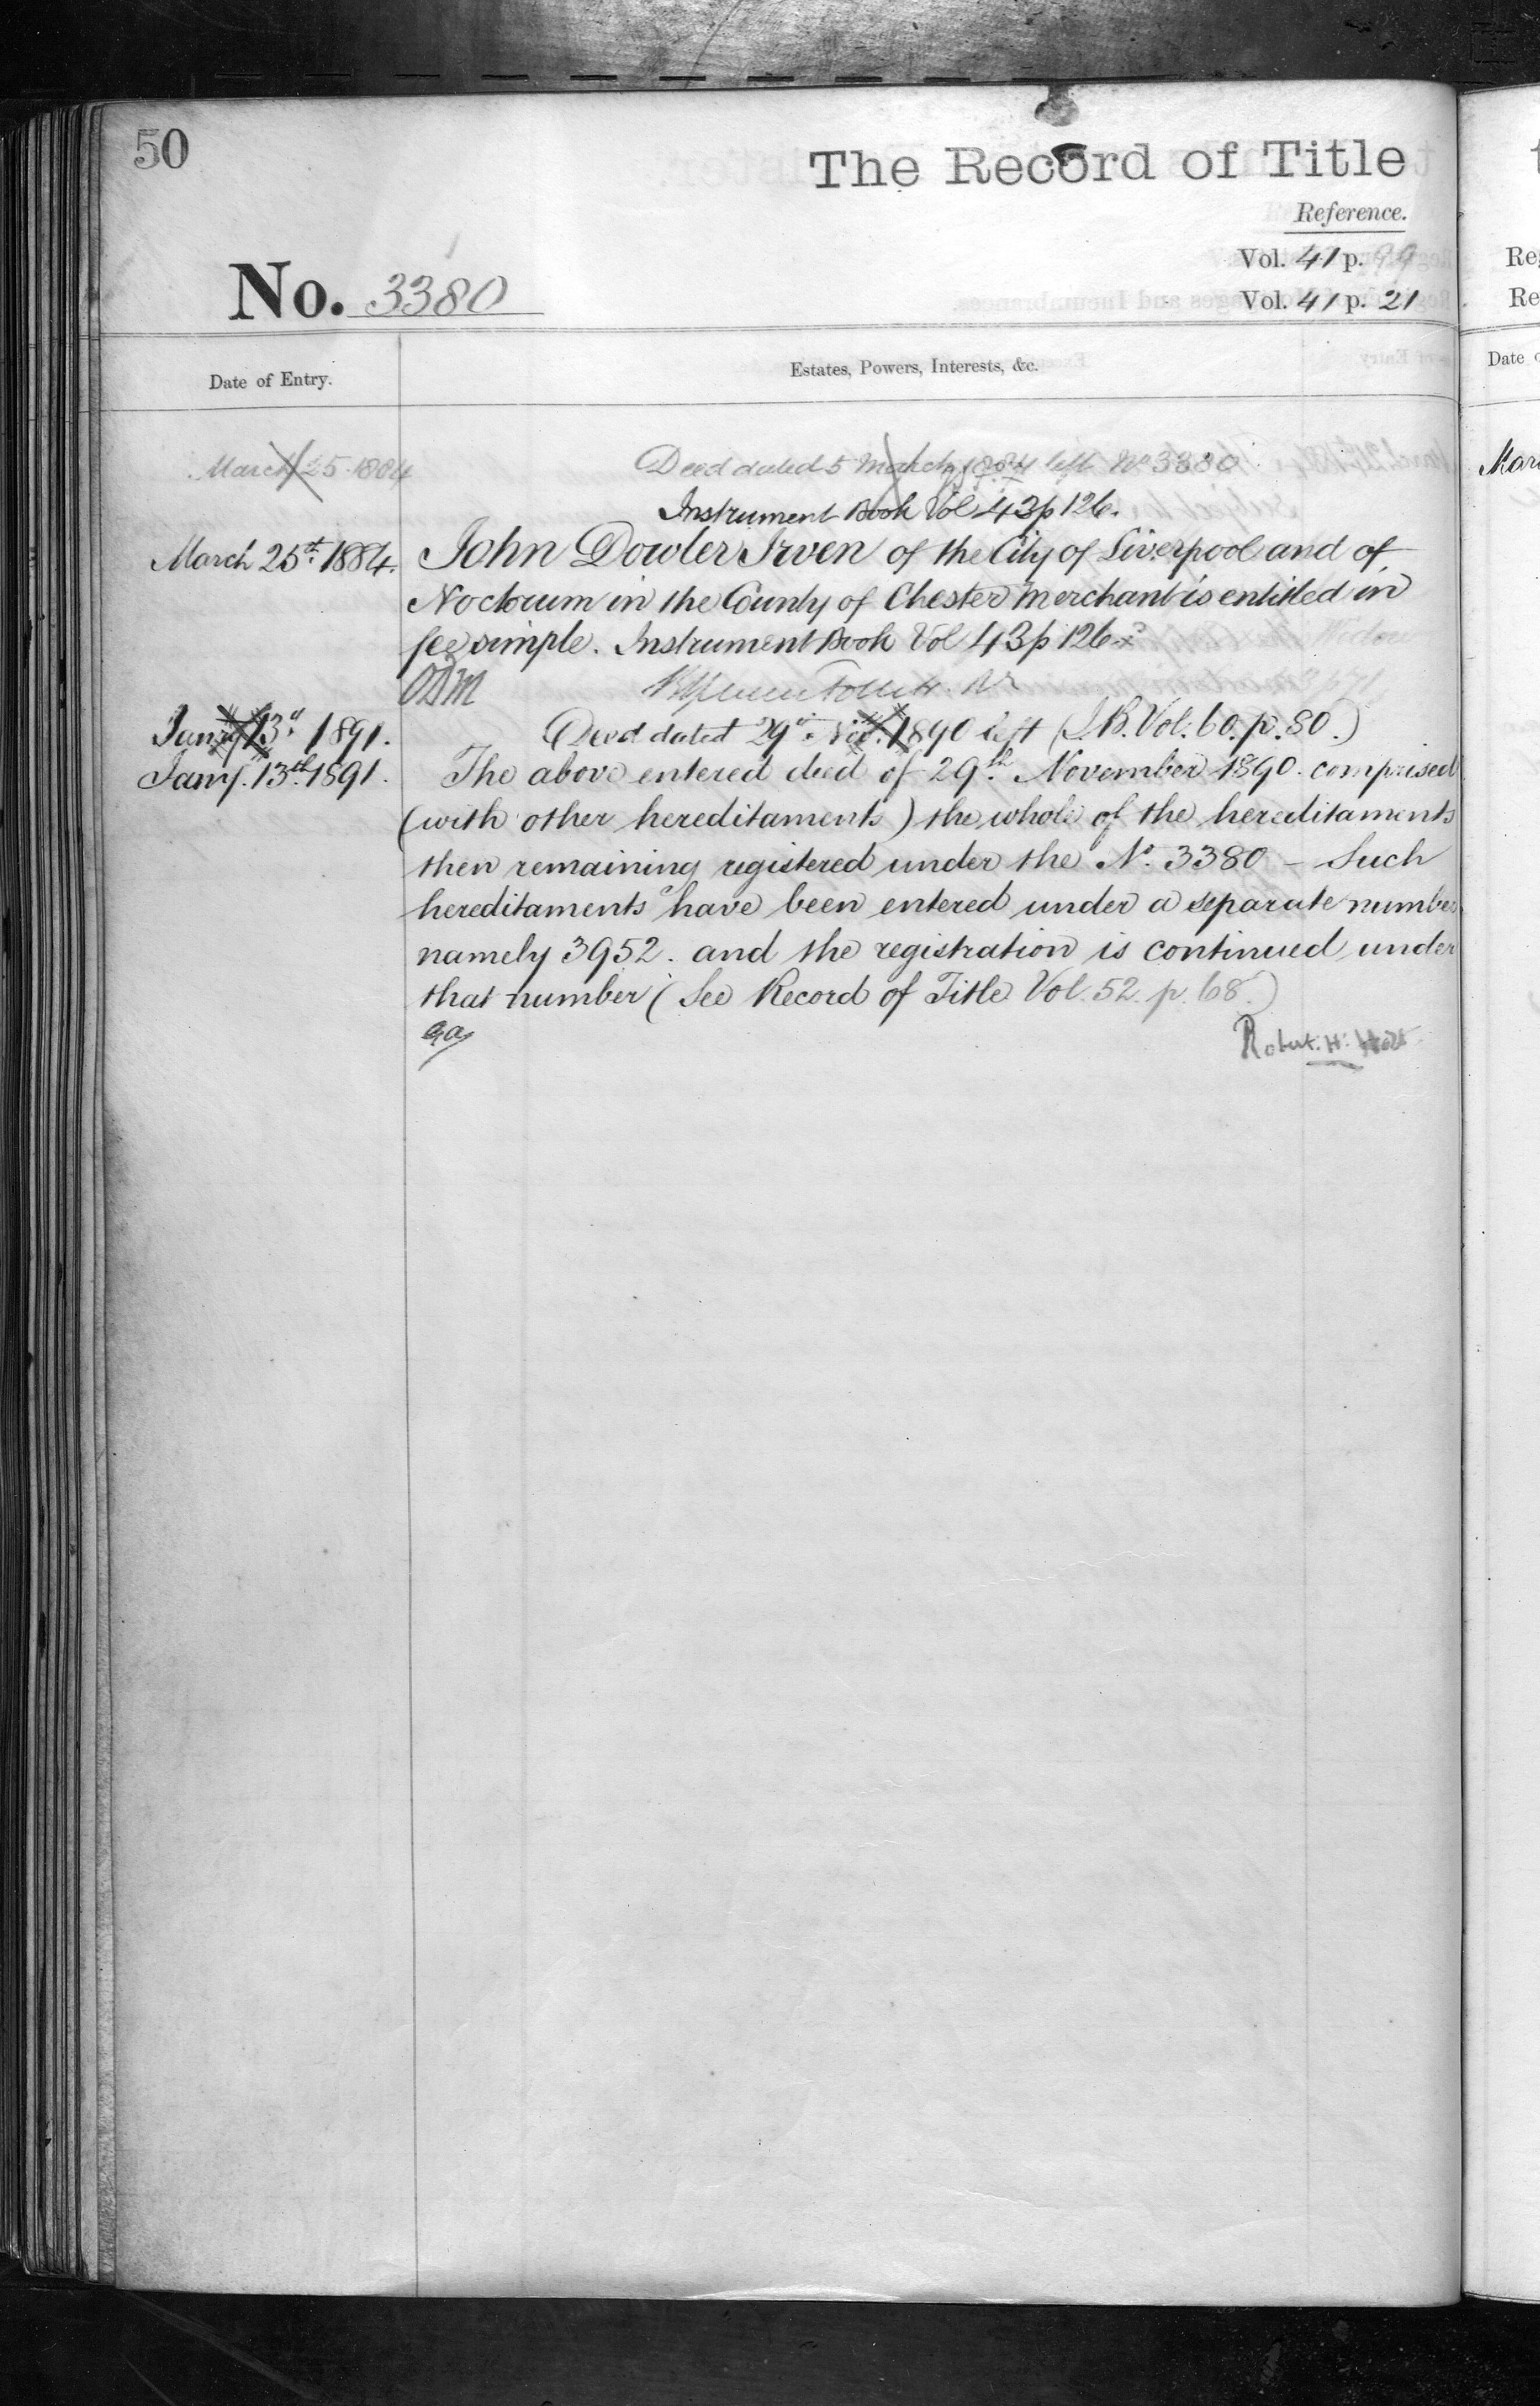 50
The Record of Title
Reference.
Vol. 41 p. 99
Vol. 41 p. 21
No. 3380
Date of Entry.
Estates, Powers, Interests, &c.
March 25 1884
Deed dated 5 March 1884 left No 3380
Instrument Book Vol 43 p 126.
March 25th 1884.
John Dowler Irven of the City of Liverpool and of
Noctorum in the County of Chester Merchant is entitled in
fee simple. Instrument Book Vol 43 p 126
ODM
Jany 13th 1891.
Deed dated 29th Nov. 1890 left (I.B. Vol. 60. p. 80.)
Jany. 13th 1891.
The above entered deed of 29th November 1890. comprised
(with other hereditaments) the whole of the hereditaments
then remaining registered under the No. 3380 – Such
hereditaments have been entered under a separate number
namely 3952. and the registration is continued under
that number (See Record of Title Vol. 52. p. 68.)
Robert. H. Holt
Re
Re
Date o
Mar